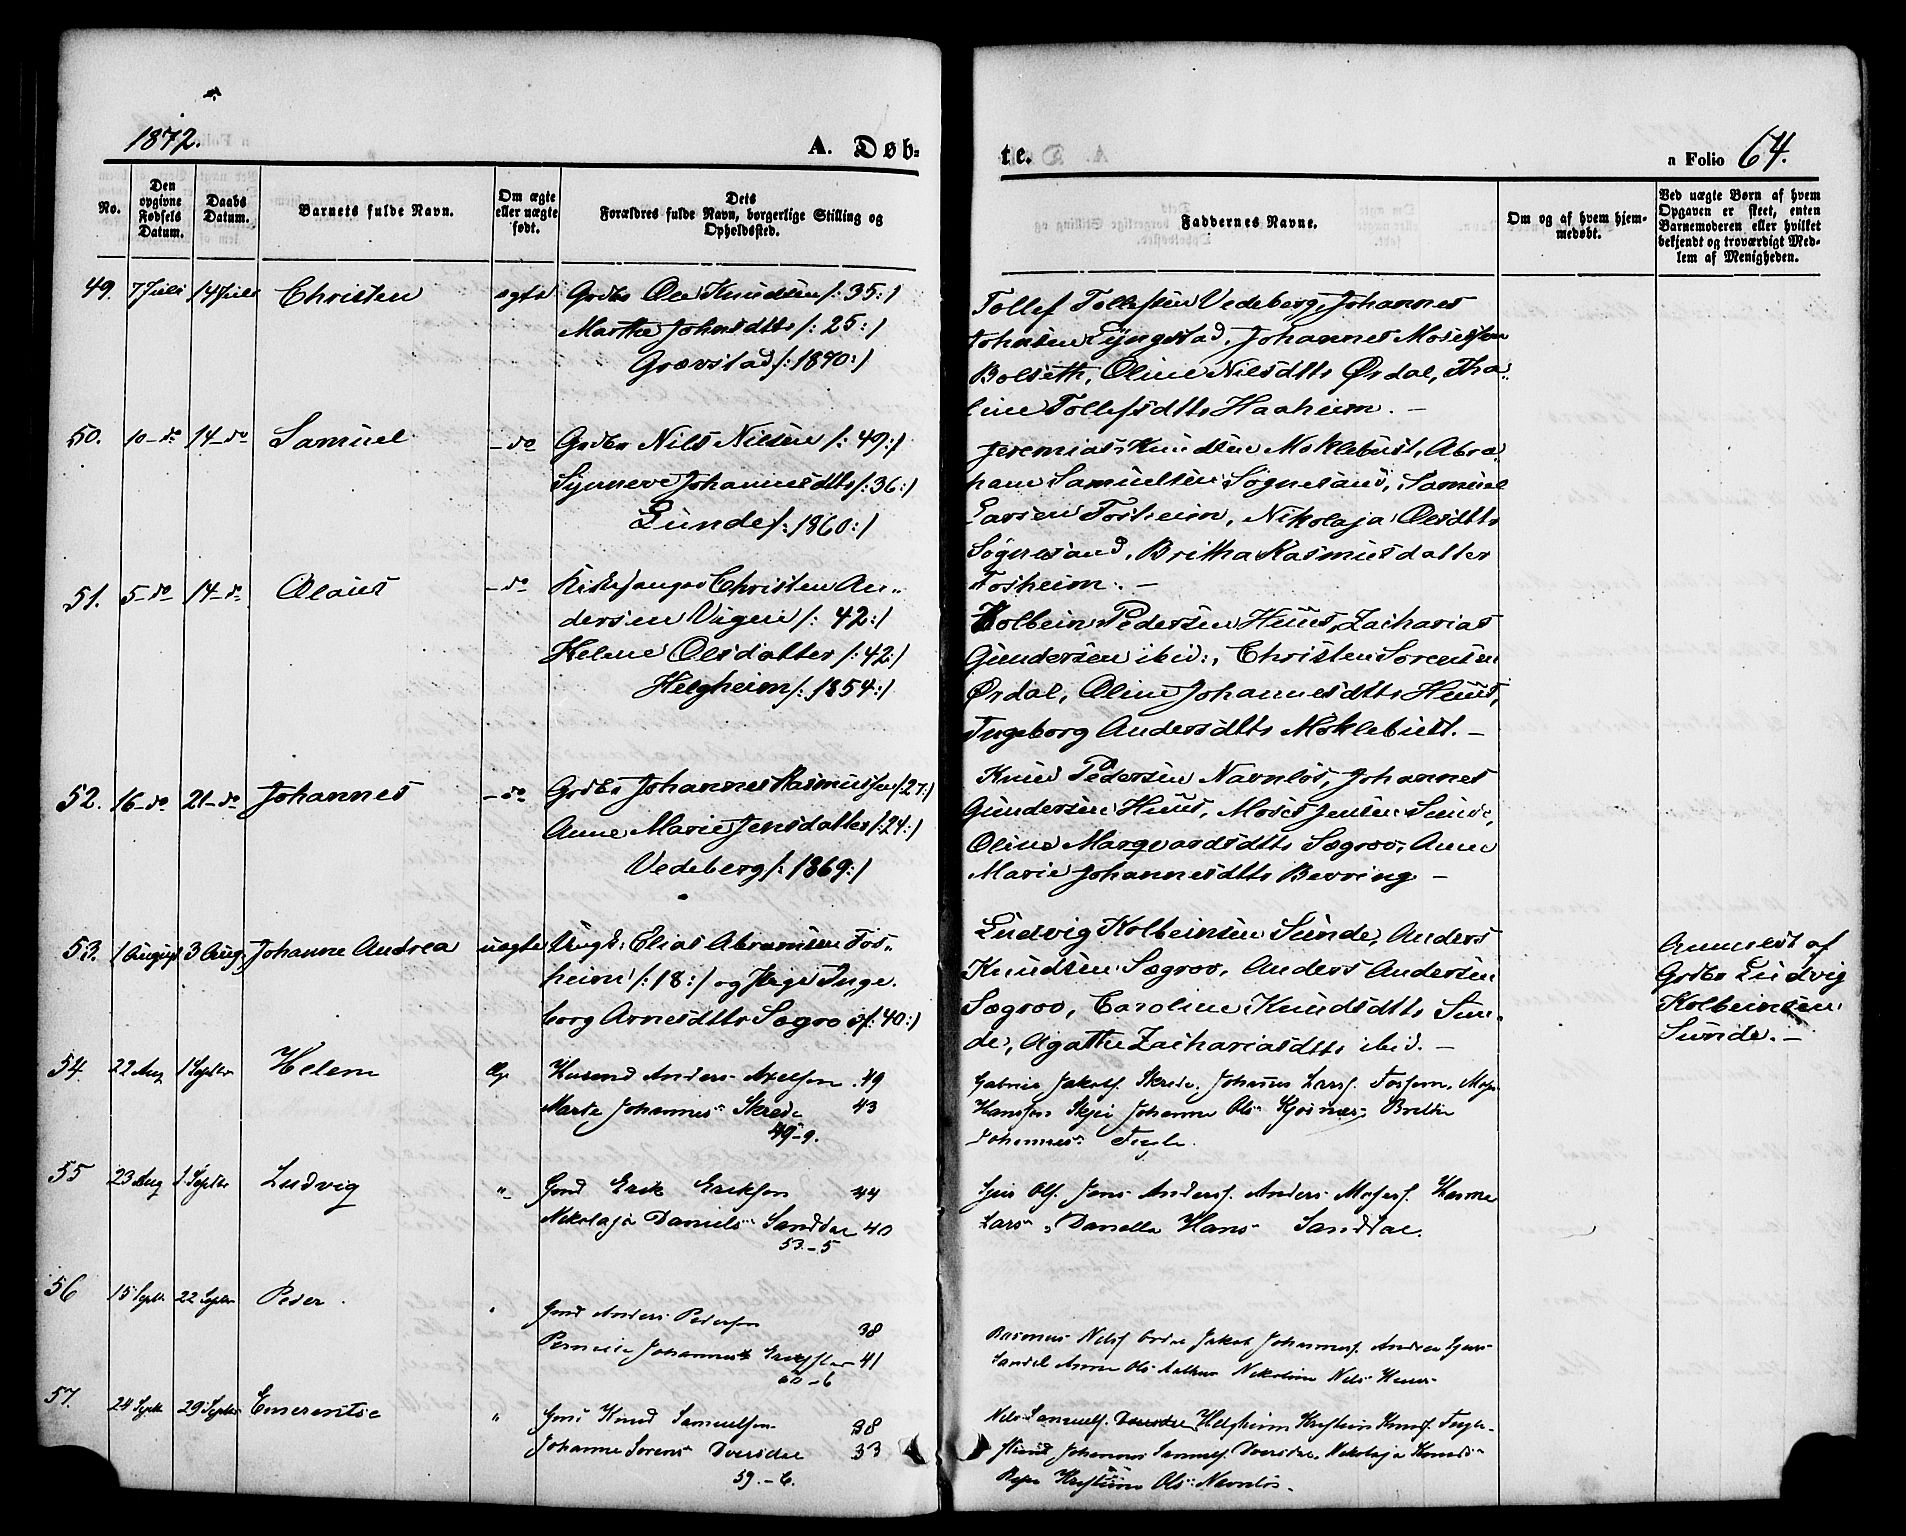 1872.
A. Døb-
te.
n Folio 64.
No.
Den opgivne Fødsels Datum.
Daabs Datum.
Barnets fulde Navn.
Om ægte eller uægte født.
Dets Forældres fulde Navn, borgerlige Stilling og Opholdssted.
Faddernes Navne.
Om og af hvem hjemmedøbt.
Ved uægte Børn af hvem Opgaven er skeet, enten Barnemoderen eller hvilket bekjendt og troværdigt Medlem af Menigheden.
49. 7 Juli 14 Juli Christen ægte Grdbr Ole Knudsen /: 35 :/
Marthe Johnsdttr /: 25 :/
Grævstad /: 1870 :/
Tollef Tollefsen Vedeberg, Johannes
Johnsen Lyngstad, Johannes Mosessen
Bolseth, Oline Nilsdttr Ørdal, Tha-
line Tollefsdttr Haaheim. -
50. 10 - do 14 - do Samuel - do Grdbr Nils Nilsen /: 49 :/
Synneve Johannesdttr /: 36 :/
Sunde /: 1860 :/
Jeremias Knudsen Moklebust, Abra-
ham Samuelsen Sognesand, Samuel
Larsen Fosheim, Nikolaja Olsdttr
Sognesand, Britha Rasmusdatter
Fosheim. -
51. 5 - do 14 - do Olaus - do Kirkesanger Christen An-
dersen Vigen /: 42 :/
Helene Olsdatter /: 42 :/
Helgheim /: 1854 :/
Kolbein Pedersen Huus, Zacharias
Gundersen ibid:, Christen Sorensen
Ørdal, Oline Johannesdttr Huus,
Ingeborg Andersdttr Moklebust. -
52. 16 - do 21 - do Johannes - do Grdbr Johannes Rasmussen /: 27 :/
Anne Marie Jensdatter /: 24 :/
Vedeberg /: 1869 :/
Knud Pedersen Navnløs, Johannes
Gundersen Huus, Moses Jensen Sunde,
Oline Marqvardsdttr Sægrov, Anne
Marie Johannesdttr Bevring -
53. 1 August 3 Aug. Johanne Andrea uægte Ungk: Elias Abramsen Fos-
heim /: 18 :/ og Pige Inge-
borg Arnesdttr Sægrov /: 40 :/
Ludvig Kolbeinsen Sunde, Anders
Knudsen Sægrov, Anders Andersen
Sægrov, Caroline Knudsdttr Sun-
de, Agathe Zachariasdttr ibid. -
Anmeldt af
Grdbr Ludvig
Kolbeinsen
Sunde. -
54. 22 Aug 1 Septbr Helene Æg Husmd Anders Axelsen 49
Marte Johannes- Skrede 43
49-9.
Gabriel Jakobs. Skrede, Johannes Larss. Fosheim, Moses
Hanssen Skjei Johanne Ols- Kjøsnes, Brithe
Johannes-
55 23 Aug 1 Septbr Ludvig "- Gmd Erik Eriksen 44
Nikolaja Daniels- Sanddal 40
53-5
Ols. Jens Anders. Anders Moses.
Lars-, Danella Hans- Sanddal.
56 15 Septbr 22 Septbr Peder " Gmd Anders Pedersen 38
Pernille Johannesd 41
60-6
Rasmus Nils. Jakob Johanness. Andrea
Sandal Anne Ols- Nikoline Nils- Huus-
57. 24 Septbr 29 Septbr Emerentse " Gmd Knud Samuelsen 38
Johanne Sørens- Dvergsdal 33
59-6.
Nils Samuels. Helgheim
Johannes Samuels. Dvergsdal, Nikolaja
Ols- Navnløs.